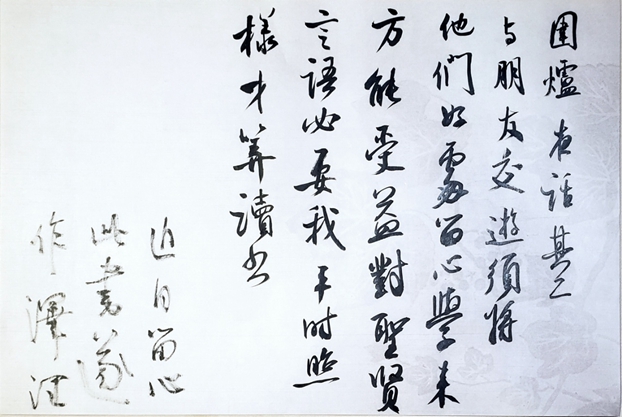 圍爐夜話其二
与朋友交遊須將
他們好處留心學来
方能受益對聖贤
言語必要我平时照
樣才算讀书
近日留心
此書遂
作澤注